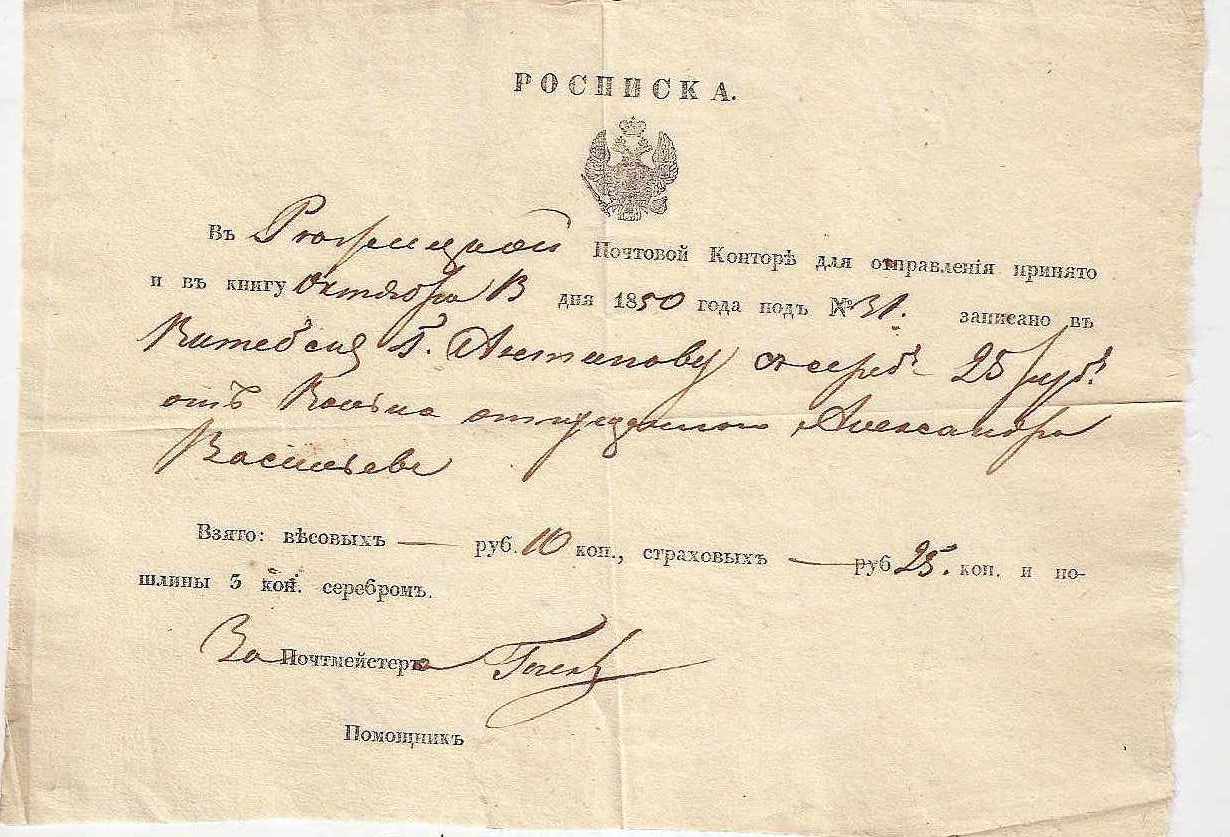 РОСПИСКА.
Въ Почтовой Конторѣ для отправленія принято
и въ книгу Октября 13 дня 1850 года подъ № 31. записано въ
Витебскъ Г. Антипову серебр. 25 руб.
отъ Александра
Васильева
Взято: вѣсовыхъ — руб. 10 коп., страховыхъ — руб 25. коп. и по-
шлины 3 коп. серебромъ.
За Почтмейстера
Помощникъ